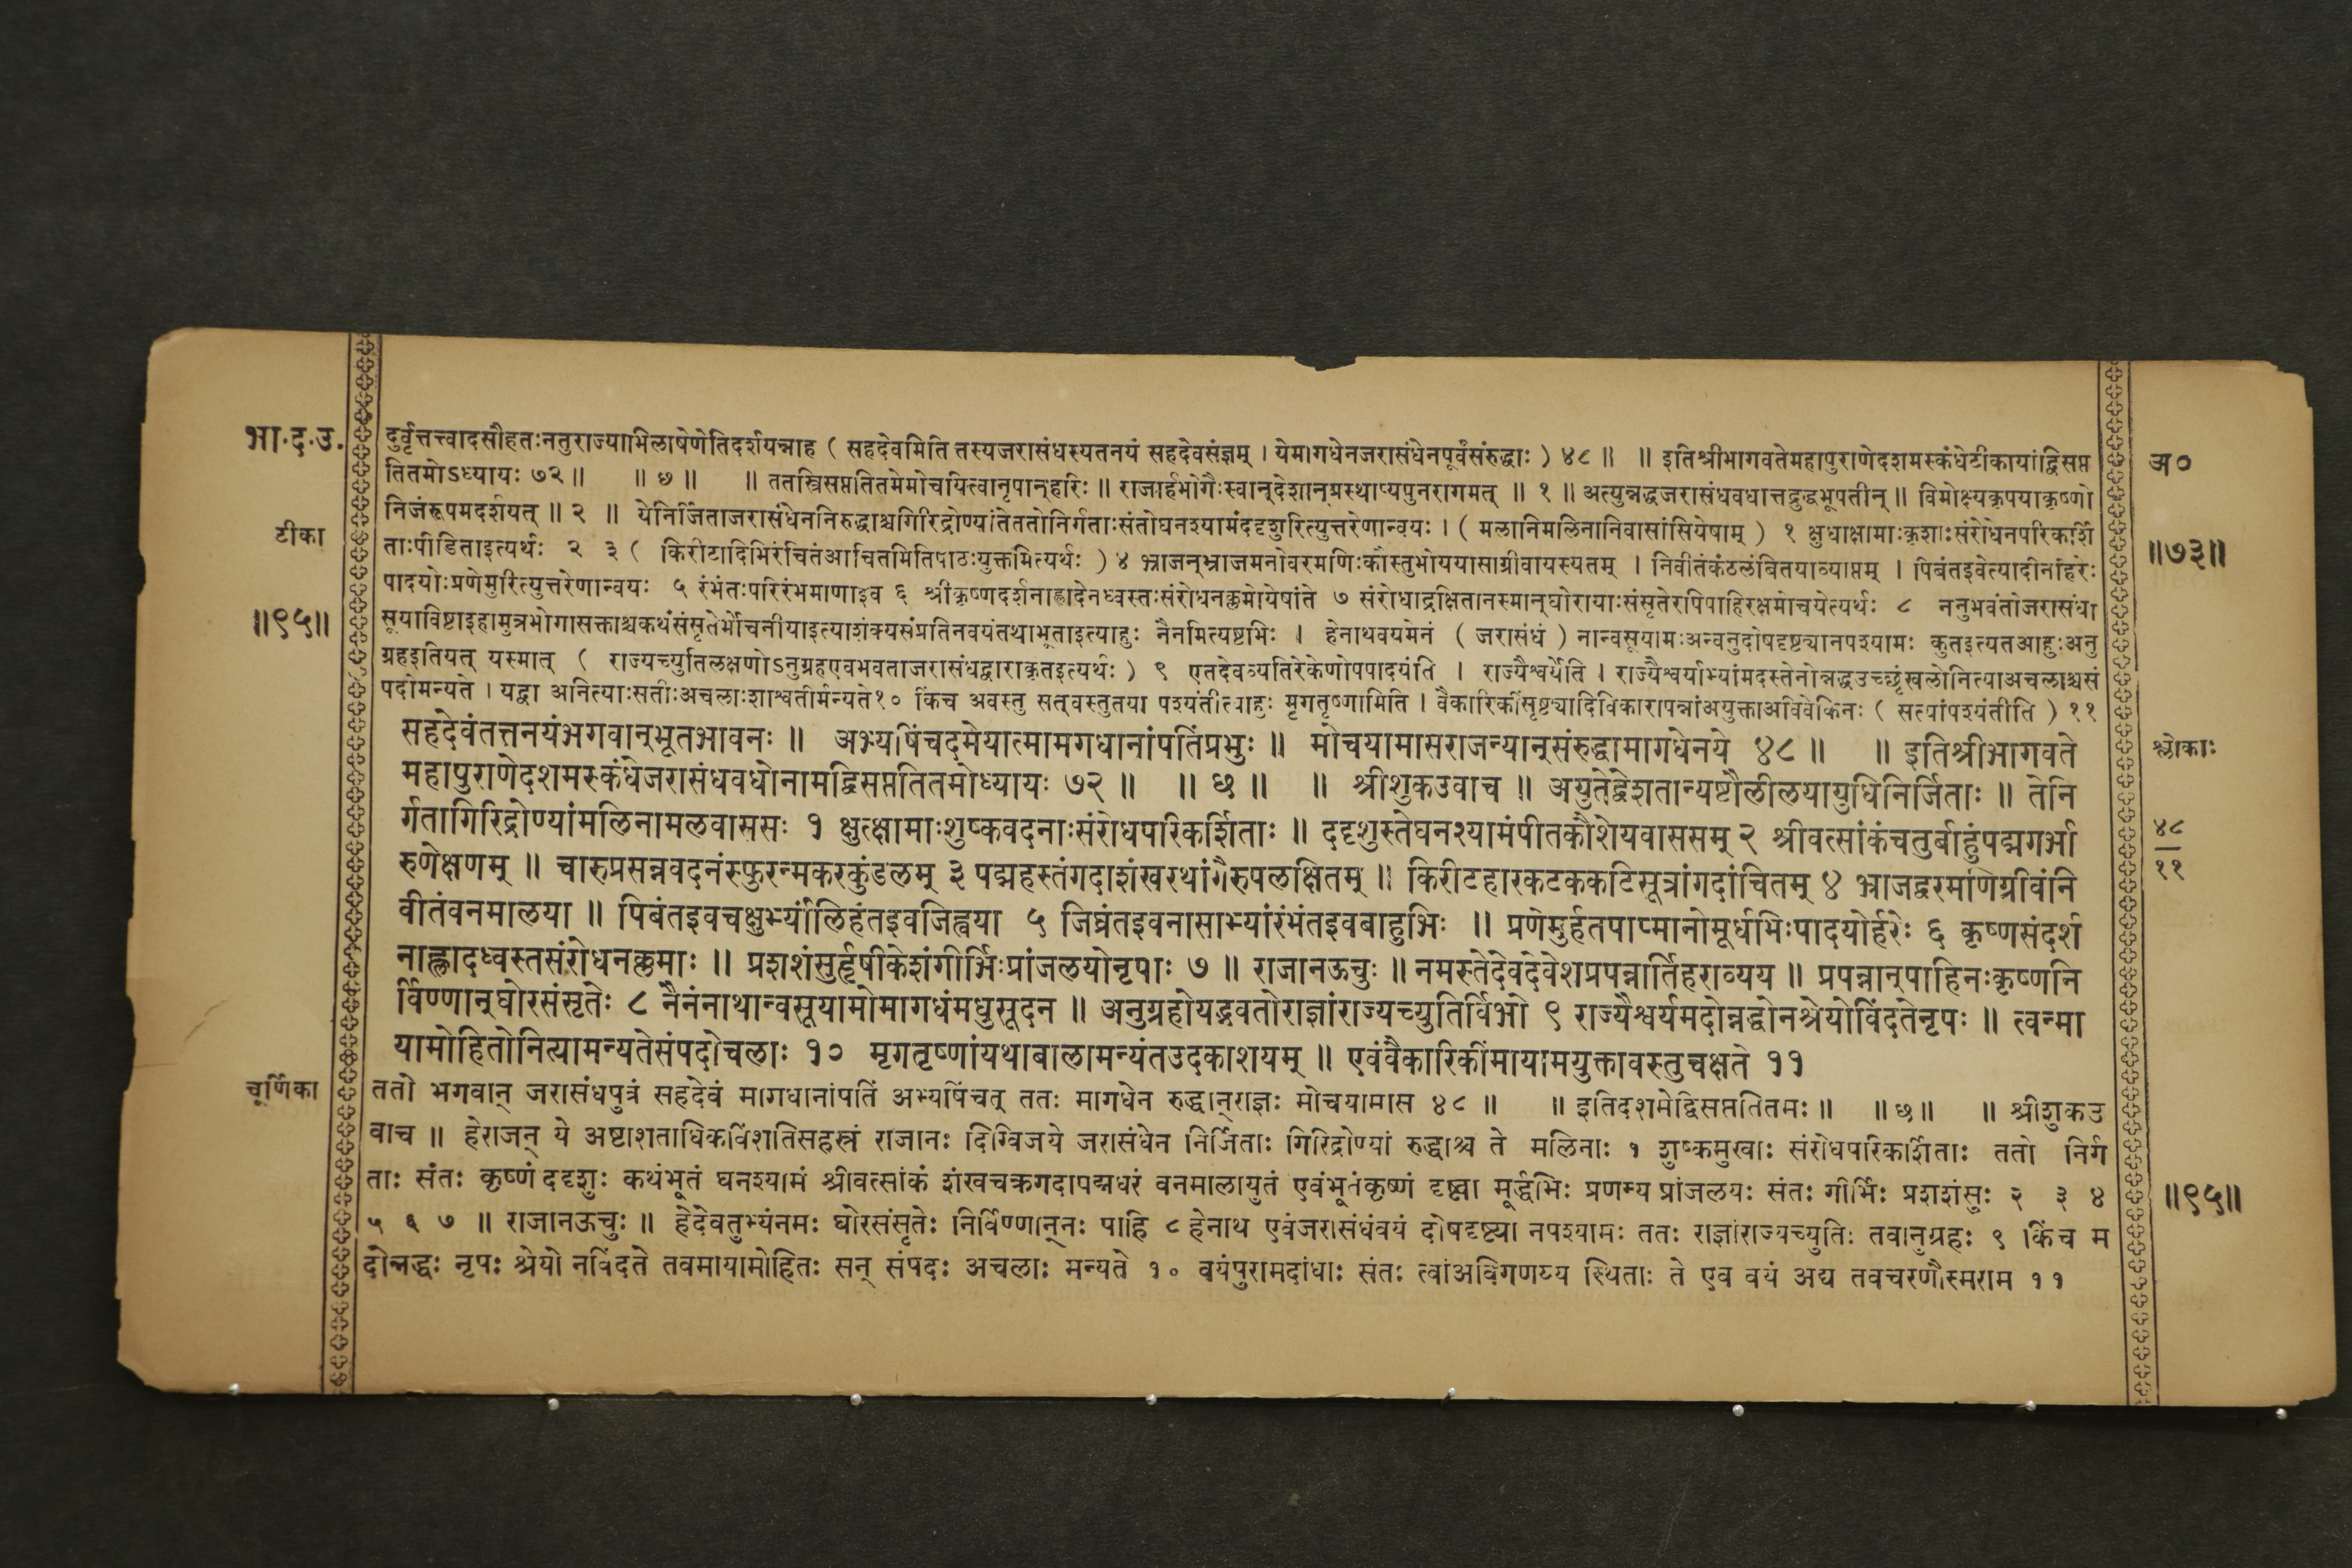 भा.द.उ.
टीका
॥९५॥
दुर्वृत्तत्त्वादसौहतःनतुराज्याभिलाषेणेतिदर्शयन्नाह ( सहदेवमिति तस्यजरासंधस्यतनयं सहदेवसंज्ञम् । येमागधेनजरासंधेनपूर्वंसंरुद्धाः ) ४८ ॥ ॥ इतिश्रीभागवतेमहापुराणेदशमस्कंधेटीकायांद्विसप्त
तितमोऽध्यायः ७२ ॥ ॥ छ ॥ ॥ ततस्त्रिसप्ततितमेमोचयित्वानृपान्हरिः ॥ राजार्हभोगैःस्वान्देशान्प्रस्थाप्यपुनरागमत् ॥ १ ॥ अत्युन्नद्धजरासंधवधात्तद्रुद्धभूपतीन् ॥ विमोक्ष्यकृपयाकृष्णो
निजंरूपमदर्शयत् ॥ २ ॥ येनिर्जिताजरासंधेननिरुद्धाश्चगिरिद्रोण्यांतेततोनिर्गताःसंतोघनश्यामंददृशुरित्युत्तरेणान्वयः । ( मलानिमलिनानिवासांसियेषाम् ) १ क्षुधाक्षामाःकृशाःसंरोधेनपरिकर्शि
ताःपीडिताइत्यर्थः २ ३ ( किरीटादिभिरंचितंआचितमितिपाठःयुक्तमित्यर्थः ) ४ भ्राजन्भ्राजमनोवरमणिःकौस्तुभोययासाग्रीवायस्यतम् । निवीतंकंठलंबितयाव्याप्तम् । पिबंतइवेत्यादीनांहरेः
पादयोःप्रणेमुरित्युत्तरेणान्वयः ५ रंभंतःपरिरंभमाणाइव ६ श्रीकृष्णदर्शनाह्लादेनध्वस्तःसंरोधनक्लमोयेषांते ७ संरोधाद्रक्षितानस्मान्घोरायाःसंसृतेरपिपाहिरक्षमोचयेत्यर्थः ८ ननुभवंतोजरासंधा
सूयाविष्टाइहामुत्रभोगासक्ताश्चकथंसंसृतेर्मोचनीयाइत्याशंक्यसंप्रतिनवयंतथाभूताइत्याहुः नैनमित्यष्टभिः । हेनाथवयमेनं ( जरासंधं ) नान्वसूयामःअन्वनुदोषदृष्ट्यानपश्यामः कुतइत्यतआहुःअनु
ग्रहइतियत् यस्मात् ( राज्यच्युतिलक्षणोऽनुग्रहएवभवताजरासंधद्वाराकृतइत्यर्थः ) ९ एतदेवव्यतिरेकेणोपपादयंति । राज्यैश्वर्येति । राज्यैश्वर्याभ्यांमदस्तेनोन्नद्धउच्छृंखलोनित्याअचलाश्चसं
पदोमन्यते । यद्वा अनित्याःसतीःअचलाःशाश्वतीर्मन्यते१० किंच अवस्तु सत्वस्तुतया पश्यंतीत्याहुः मृगतृष्णामिति । वैकारिकींसृष्ट्यादिविकारापन्नांअयुक्ताअविवेकिनः ( सत्यांपश्यंतीति ) ११
सहदेवंतत्तनयंभगवान्भूतभावनः ॥ अभ्यषिंचदमेयात्मामगधानांपतिंप्रभुः ॥ मोचयामासराजन्यान्संरुद्धामागधेनये ४८ ॥ ॥ इतिश्रीभागवते
महापुराणेदशमस्कंधेजरासंधवधोनामद्विसप्ततितमोध्यायः ७२ ॥ ॥ छ ॥ ॥ श्रीशुकउवाच ॥ अयुतेद्वेशतान्यष्टौलीलयायुधिनिर्जिताः ॥ तेनि
र्गतागिरिद्रोण्यांमलिनामलवाससः १ क्षुत्क्षामाःशुष्कवदनाःसंरोधपरिकर्शिताः ॥ ददृशुस्तेघनश्यामंपीतकौशेयवाससम् २ श्रीवत्सांकंचतुर्बाहुंपद्मगर्भा
रुणेक्षणम् ॥ चारुप्रसन्नवदनंस्फुरन्मकरकुंडलम् ३ पद्महस्तंगदाशंखरथांगैरुपलक्षितम् ॥ किरीटहारकटककटिसूत्रांगदांचितम् ४ भ्राजद्वरमणिग्रीवंनि
वीतंवनमालया ॥ पिबंतइवचक्षुर्भ्यांलिहंतइवजिह्वया ५ जिघ्रंतइवनासाभ्यांरंभंतइवबाहुभिः ॥ प्रणेमुर्हतपाप्मानोमूर्धभिःपादयोर्हरेः ६ कृष्णसंदर्श
नाह्लादध्वस्तसंरोधनक्लमाः ॥ प्रशशंसुर्हृषीकेशंगीर्भिःप्रांजलयोनृपाः ७ ॥ राजानऊचुः ॥ नमस्तेदेवदेवेशप्रपन्नार्तिहराव्यय ॥ प्रपन्नान्पाहिनःकृष्णनि
र्विण्णान्घोरसंसृतेः ८ नैनंनाथान्वसूयामोमागधंमधुसूदन ॥ अनुग्रहोयद्भवतोराज्ञांराज्यच्युतिर्विभो ९ राज्यैश्वर्यमदोन्नद्धोनश्रेयोविंदतेनृपः ॥ त्वन्मा
यामोहितोनित्यामन्यतेसंपदोचलाः १० मृगतृष्णांयथाबालामन्यंतउदकाशयम् ॥ एवंवैकारिकींमायामयुक्तावस्तुचक्षते ११
चूर्णिका
ततो भगवान् जरासंधपुत्रं सहदेवं मागधानांपतिं अभ्यषिंचत् ततः मागधेन रुद्धान्राज्ञः मोचयामास ४८ ॥ ॥ इतिदशमेद्विसप्ततितमः ॥ ॥ छ ॥ ॥ श्रीशुकउ
वाच ॥ हेराजन् ये अष्टाशताधिकविंशतिसहस्त्रं राजानः दिग्विजये जरासंधेन निर्जिताः गिरिद्रोण्यां रुद्धाश्च ते मलिनाः १ शुष्कमुखाः संरोधपरिकर्शिताः ततो निर्ग
ताः संतः कृष्णं ददृशुः कथंभूतं घनश्यामं श्रीवत्सांकं शंखचक्रगदापद्मधरं वनमालायुतं एवंभूतंकृष्णं दृष्ट्वा मूर्द्धभिः प्रणम्य प्रांजलयः संतः गीर्भिः प्रशशंसुः २ ३ ४
५ ६ ७ ॥ राजानऊचुः ॥ हेदेवतुभ्यंनमः घोरसंसृतेः निर्विण्णान्नः पाहि ८ हेनाथ एवंजरासंधंवयं दोषदृष्ट्या नपश्यामः ततः राज्ञांराज्यच्युतिः तवानुग्रहः ९ किंच म
दोन्नद्धः नृपः श्रेयो नविंदते तवमायामोहितः सन् संपदः अचलाः मन्यते १० वयंपुरामदांधाः संतः त्वांअविगणय्य स्थिताः ते एव वयं अद्य तवचरणौस्मराम ११
अ०
॥७३॥
श्लोकाः
४८
११
॥९५॥